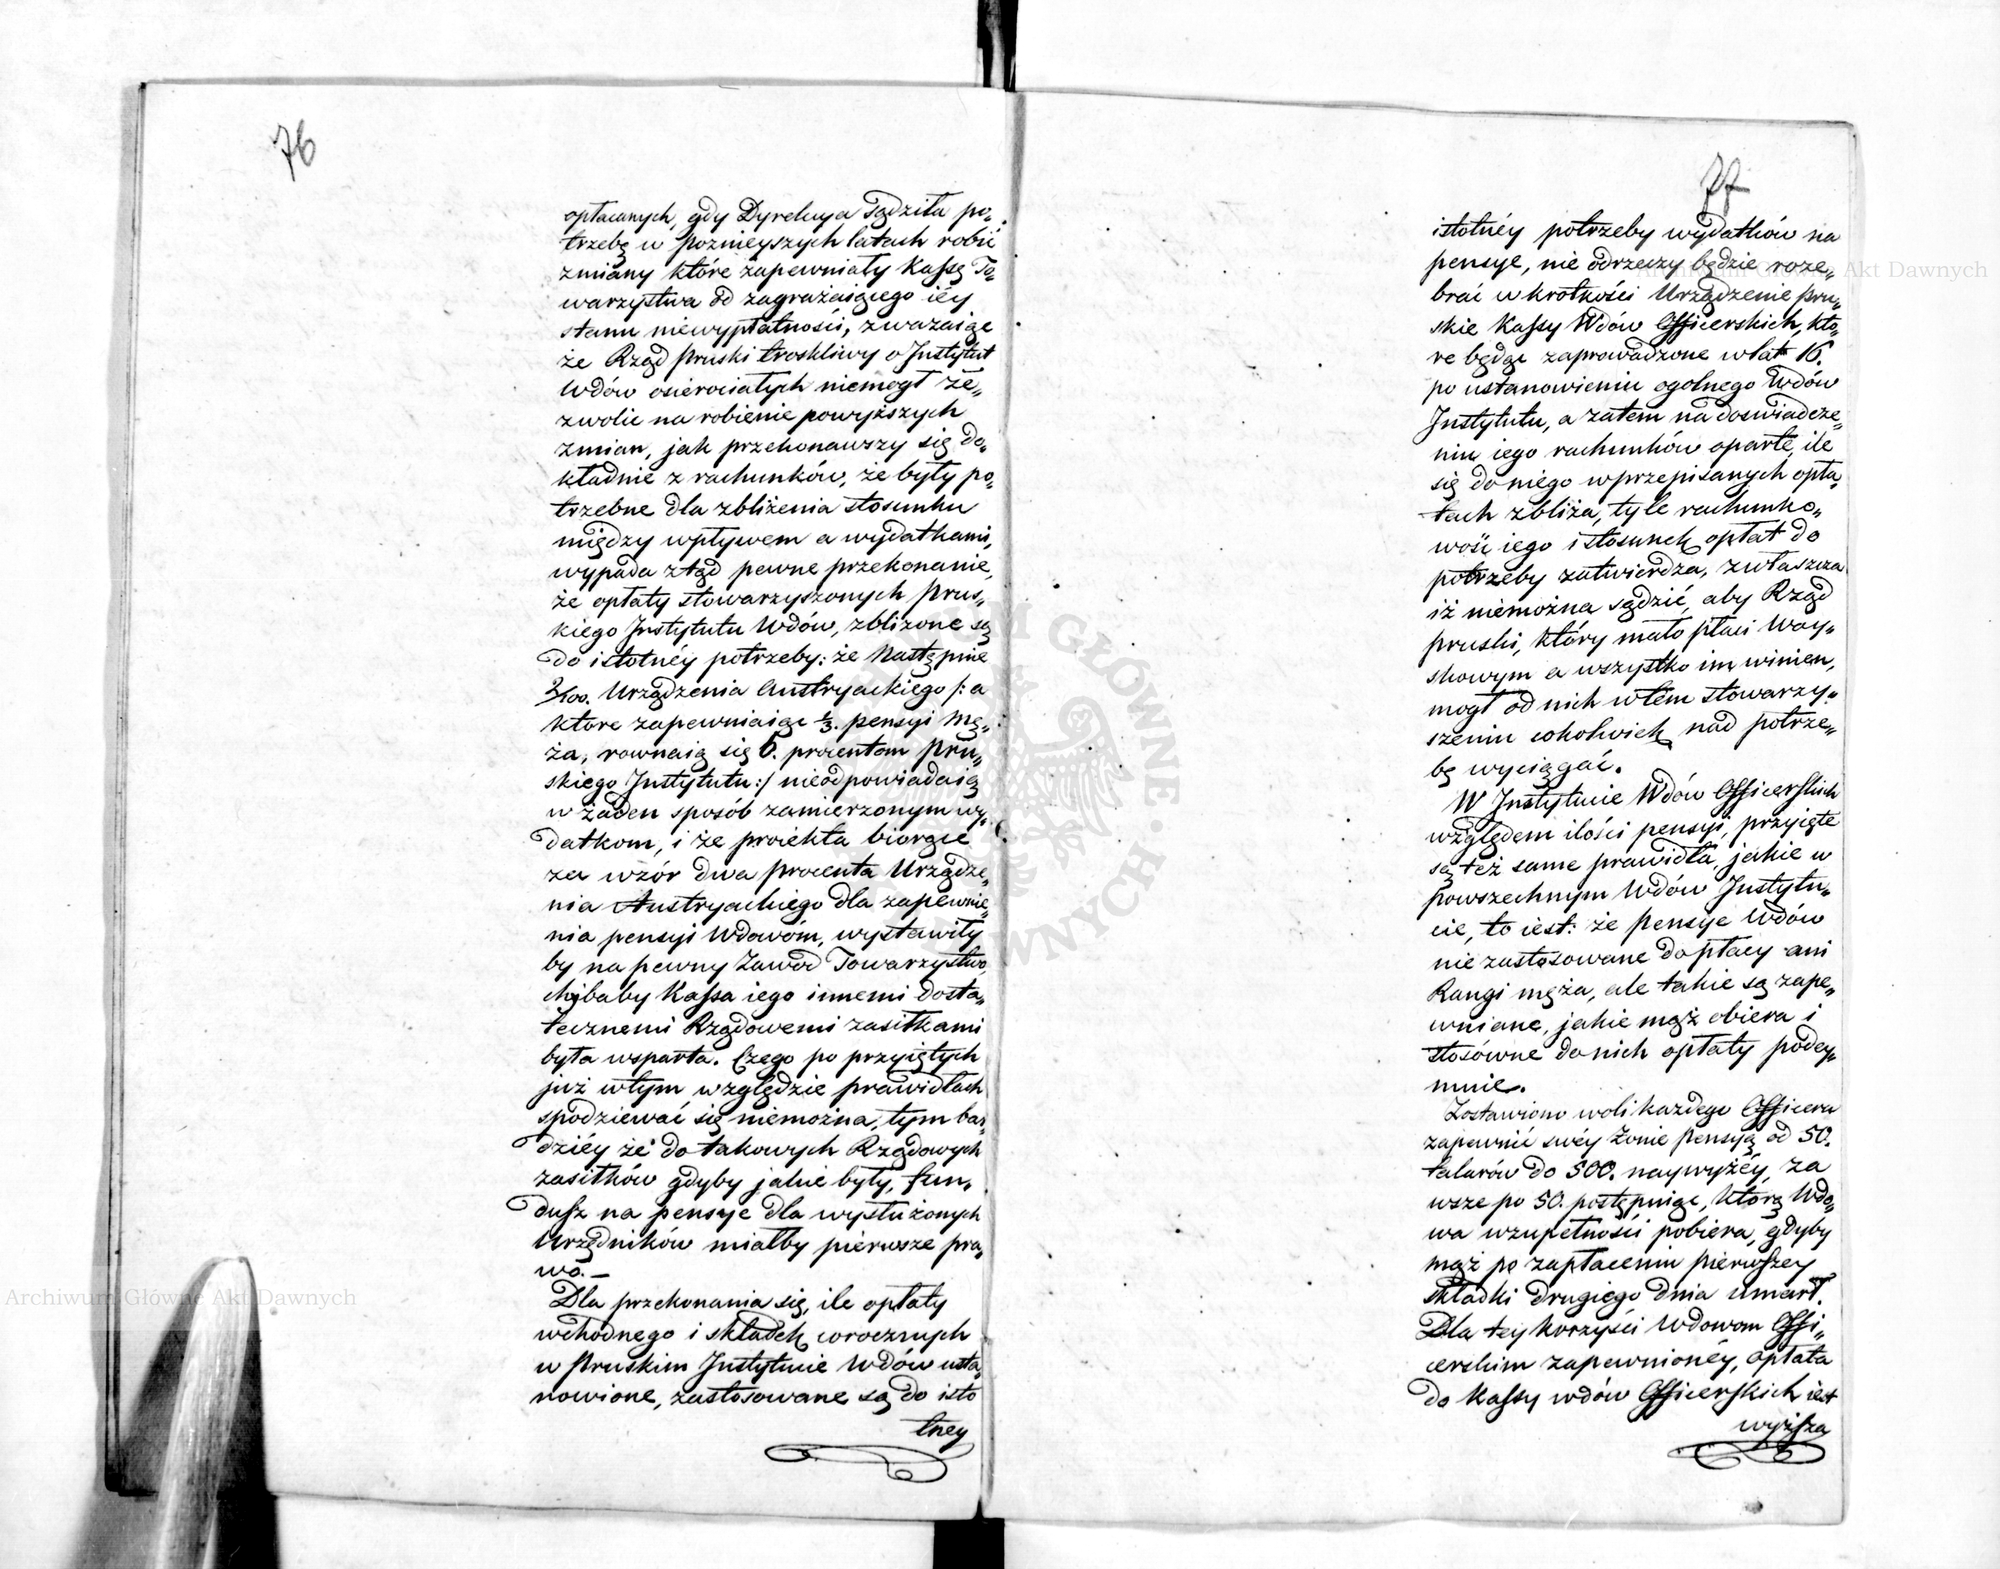 76
opłacanych, gdy Dyrekcya sądziła po„
trzebę w poznieyszych latach robić
zmiany które zapewniały Kassę To„
warzystwa od zagrażaiącego iéy
stanu niewypłatności, zwazaiąc
że Rząd Pruski troskliwy o Instytut
Wdów osierociałych niemogł ze„
zwolic na robienie powyższych
zmian, jak przekonawszy się do„
kładnie z rachunków, że były po„
trzebne dla zbliżenia stosunku
między wpływem a wydatkami,
wypada ztąd pewne przekonanie,
że opłaty stowarzyszonych Prus„
kiego Instytutu Wdów, zbliżone są
do istotnéy potrzeby: że Następnie
2/100. Urządzenia Austryackiego /: a
ktore zapewniaiąc 1/3. pensyi Mę„
ża, rownaią się 6. procentom Pru„
skiego Instytutu :/ nieodpowiadaią
w żaden sposób zamierzonym wy„
datkom, i że proiekta biorące
za wzór dwa procenta Urządze„
nia Austryackiego dla zapewnie„
nia pensyi Wdowóm, wystawiły
by na pewny Zawód Towarzystwo,
chybaby Kassa iego innemi dosta„
tecznemi Rządowemi zasiłkami
była wsparta. Czego po przyiętych
już wtym względzie prawidłach
spodziewać się niemożna, tym bar„
dziéy że do takowych Rządowych
zasiłków gdyby jakie były, fun„
dusz na pensye dla wysłużonych
Urzędników miałby pierwsze pra„
wo. —
Dla przekonania się, ile opłaty
wchodnego i składek corocznych
w Pruskim Instytucie Wdów usta„
nowione, zastosowane są do isto
tney
77
istotnéy potrzeby wydatków na
pensye, nie odrzeczy będzie roze„
brać w krotkości Urządzenie Pru„
skie Kassy Wdów Officerskich, kto„
re będąc zaprowadzone w lat 16.
po ustanowieniu ogolnego Wdów
Instytutu, a zatem na doswiadcze„
niu iego rachunków oparte, ile
się do niego w przepisanych opła„
tach zbliża, tyle rachunko„
wość iego i stosunek opłat do
potrzeby zatwierdza, zwłaszcza
iż niemożna sądzić, aby Rząd
pruski, który mało płaci Woy„
skowym a wszystko im winien,
mogł od nich wtém stowarzy„
szeniu cokolwiek nad potrze„
bę wyciągać.
W Instytucie Wdów Officerskich
względem ilości pensyi, przyięte
są też same prawidła, jakie w
powszechnym Wdów Instytu„
cie, to iest: że pensye Wdów
nie zastosowane do płacy ani
Rangi męża, ale takie są zape„
wniane, jakie mąż obiera i
stosówne do nich opłaty podey„
muie.
Zostawiono woli każdego Officera
zapewnić swéy Żonie pensyą od 50.
talarów do 500. naywyżéy, za
wsze po 50. postępuiąc, którą Wdo„
wa w zupełności pobiera, gdyby
mąż po zapłaceniu pierwszey
składki drugiego dnia umarł.
Dla tey korzyści Wdowom Offi„
cerskim zapewnionéy, opłata
do Kassy wdów Officerskich iest
wyższa
Archiwum Główne Akt Dawnych
Archiwum Główne Akt Dawnych